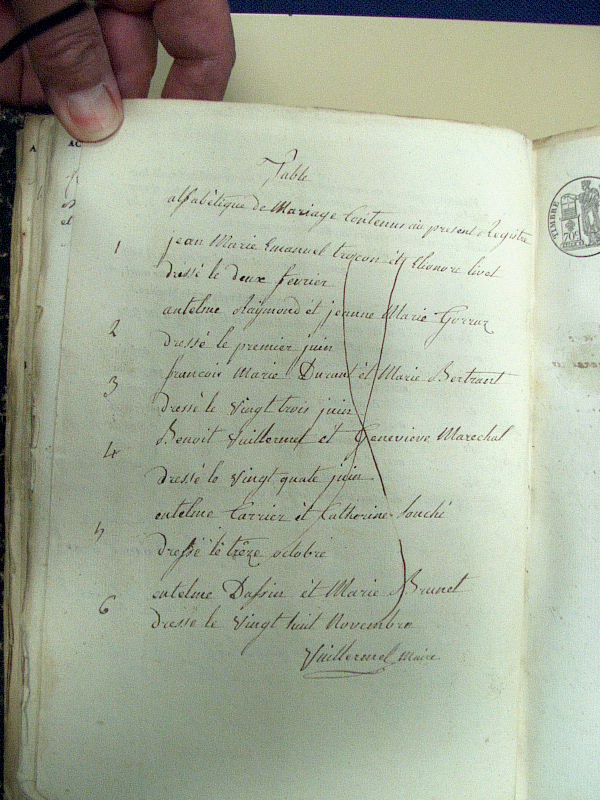 A
AC
Table
alfabétique de Mariage Contenus au present Registre
1 jean Marie Emanuel trocon et Elonore livet
dressé le deux fevrier
2 antelme Raymond et jeanne Marie Gorruz
dressé le premier juin
3 françois Marie Durant et Marie Bertrant
dressé le vingt trois juin
4 Benoit Vuillermet et Geneviève Marechal
dressé le vingt quate juin
5 entelme Carrier et Catherine Souché
dressé le trèze octobre
6 entelme Dassin et Marie Brunet
dressé le vingt huit Novembre
Vuillermet Maire
TIMBRE
70c